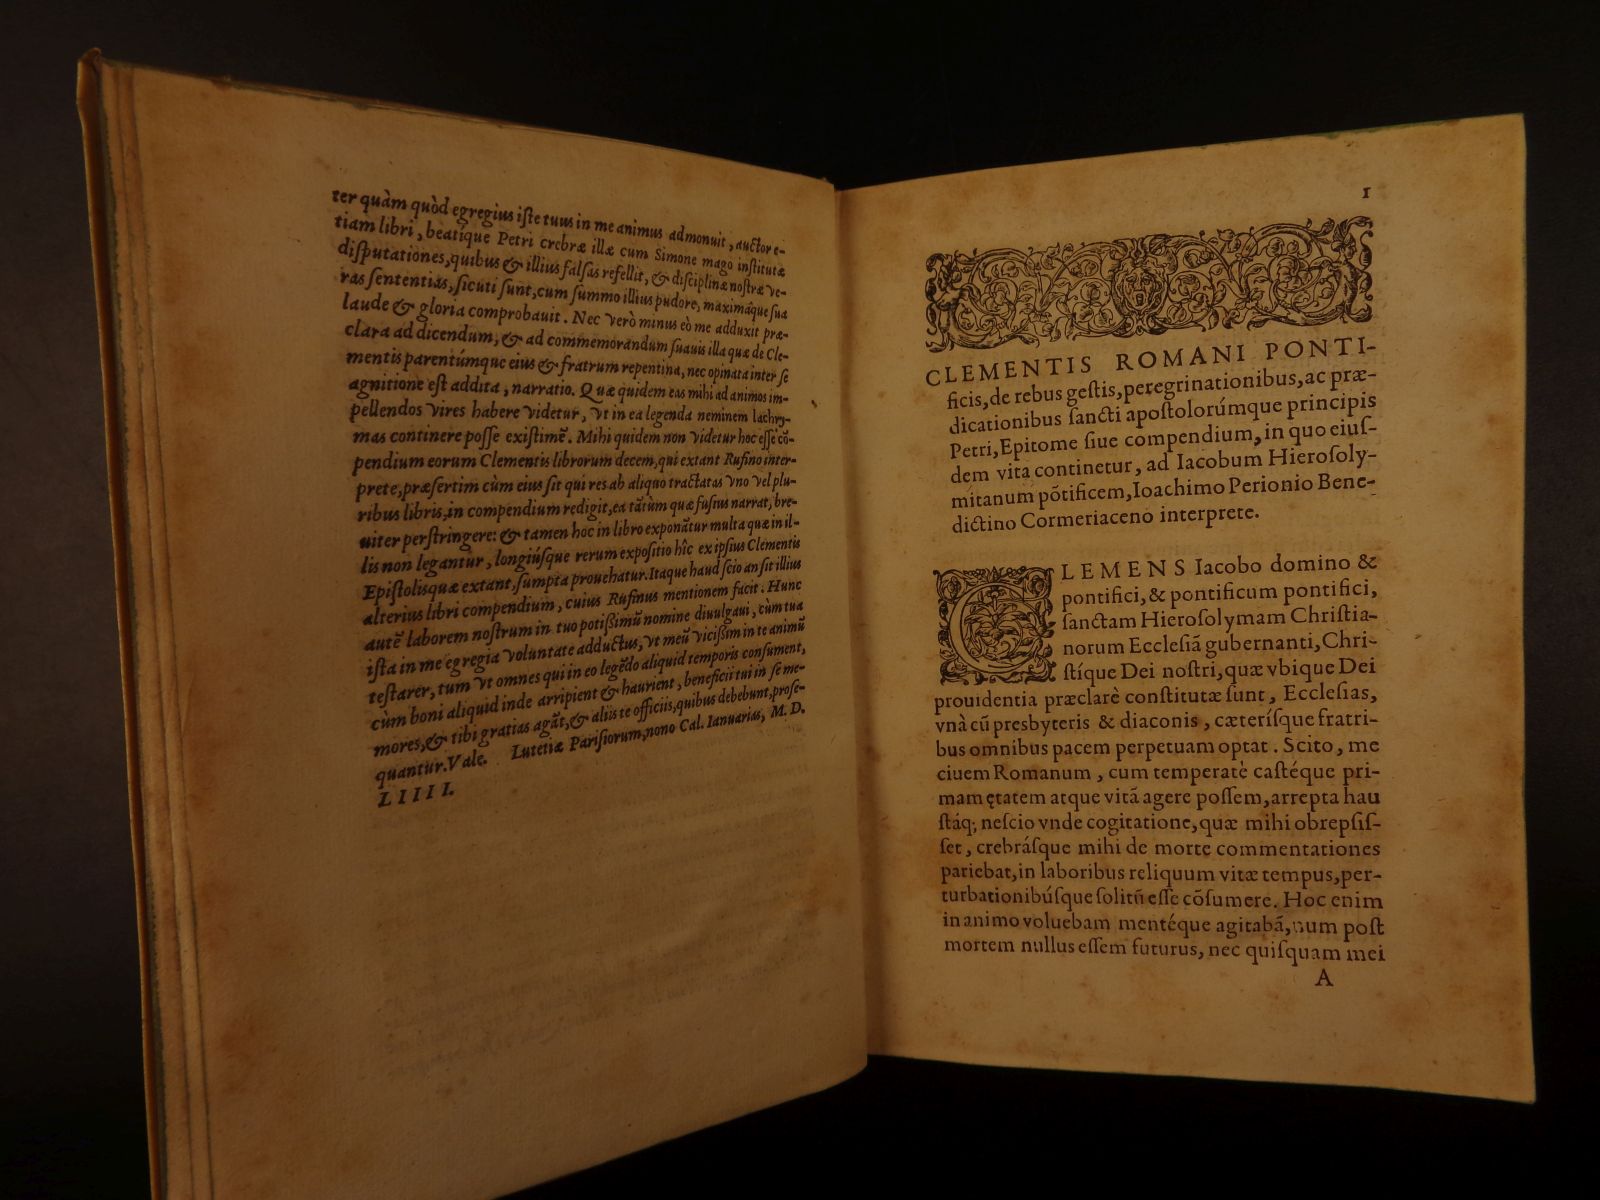 ter quàm quòd egregius iſte tuus in me animus admonuit, auctore-
tiam libri, beatíque Petri crebræ illæ cum Simone mago inſtitutæ
diſputationes, quibus & illius falſas refellit, & diſciplinæ noſtræ ve-
ras ſententias, ſicuti ſunt, cum ſummo illius pudore, maximáque ſua
laude & gloria comprobauit. Nec verò minus eò me adduxit præ-
clara ad dicendum, & ad commemorandum ſuauis illa quæ de Cle-
mentis parentúmque eius & fratrum repentina, nec opinata inter ſe
agnitione eſt addita, narratio. Quæ quidem eas mihi ad animos im-
pellendos vires habere videtur, vt in ea legenda neminem lachry-
mas continere poſſe exiſtimē. Mihi quidem non videtur hoc eſſe cō-
pendium eorum Clementis librorum decem, qui extant Rufino inter-
prete, præſertim cùm eius ſit qui res ab aliquo tractatas vno vel plu-
ribus libris, in compendium redigit, ea tātùm quæ fuſius narrat, bre-
uiter perſtringere: & tamen hoc in libro exponātur multa quæ in il-
lis non legantur, longiúſque rerum expoſitio hîc ex ipſius Clementis
Epiſtolis quæ extant, ſumpta prouehatur. Itaque haud ſcio an ſit illius
alterius libri compendium, cuius Rufinus mentionem facit. Hunc
autē laborem noſtrum in tuo potißimū nomine diuulgaui, cùm tua
iſta in me egregia voluntate adductus, vt meū viciſſim in te animū
teſtarer, tum vt omnes qui in eo legēdo aliquid temporis conſument,
cùm boni aliquid inde arripient & haurient, beneficij tui in ſe me-
mores, & tibi gratias agāt, & aliis te officiis, quibus debebunt, proſe-
quantur. Vale. Lutetiæ Pariſiorum, nono Cal. Ianuarias, M. D.
LIIII.
1
CLEMENTIS ROMANI PONTI-
ficis, de rebus geſtis, peregrinationibus, ac præ-
dicationibus ſancti apoſtolorúmque principis
Petri, Epitome ſiue compendium, in quo eiuſ-
dem vita continetur, ad Iacobum Hieroſoly-
mitanum pōtificem, Ioachimo Perionio Bene-
dictino Cormeriaceno interprete.
CLEMENS Iacobo domino &
pontifici, & pontificum pontifici,
ſanctam Hieroſolymam Chriſtia-
norum Eccleſiā gubernanti, Chri-
ſtíque Dei noſtri, quæ vbique Dei
prouidentia præclarè conſtitutæ ſunt, Eccleſias,
vnà cū presbyteris & diaconis, cæteríſque fratri-
bus omnibus pacem perpetuam optat. Scito, me
ciuem Romanum, cum temperatè caſtéque pri-
mam ętatem atque vitā agere poſſem, arrepta hau
ſtáq; neſcio vnde cogitatione, quæ mihi obrepſiſ-
ſet, crebráſque mihi de morte commentationes
pariebat, in laboribus reliquum vitæ tempus, per-
turbationibúſque ſolitū eſſe cōſumere. Hoc enim
in animo voluebam mentéque agitabā, num poſt
mortem nullus eſſem futurus, nec quiſquam mei
A